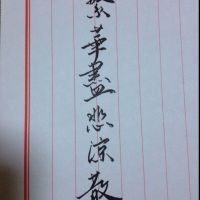 繁華盡悲涼散